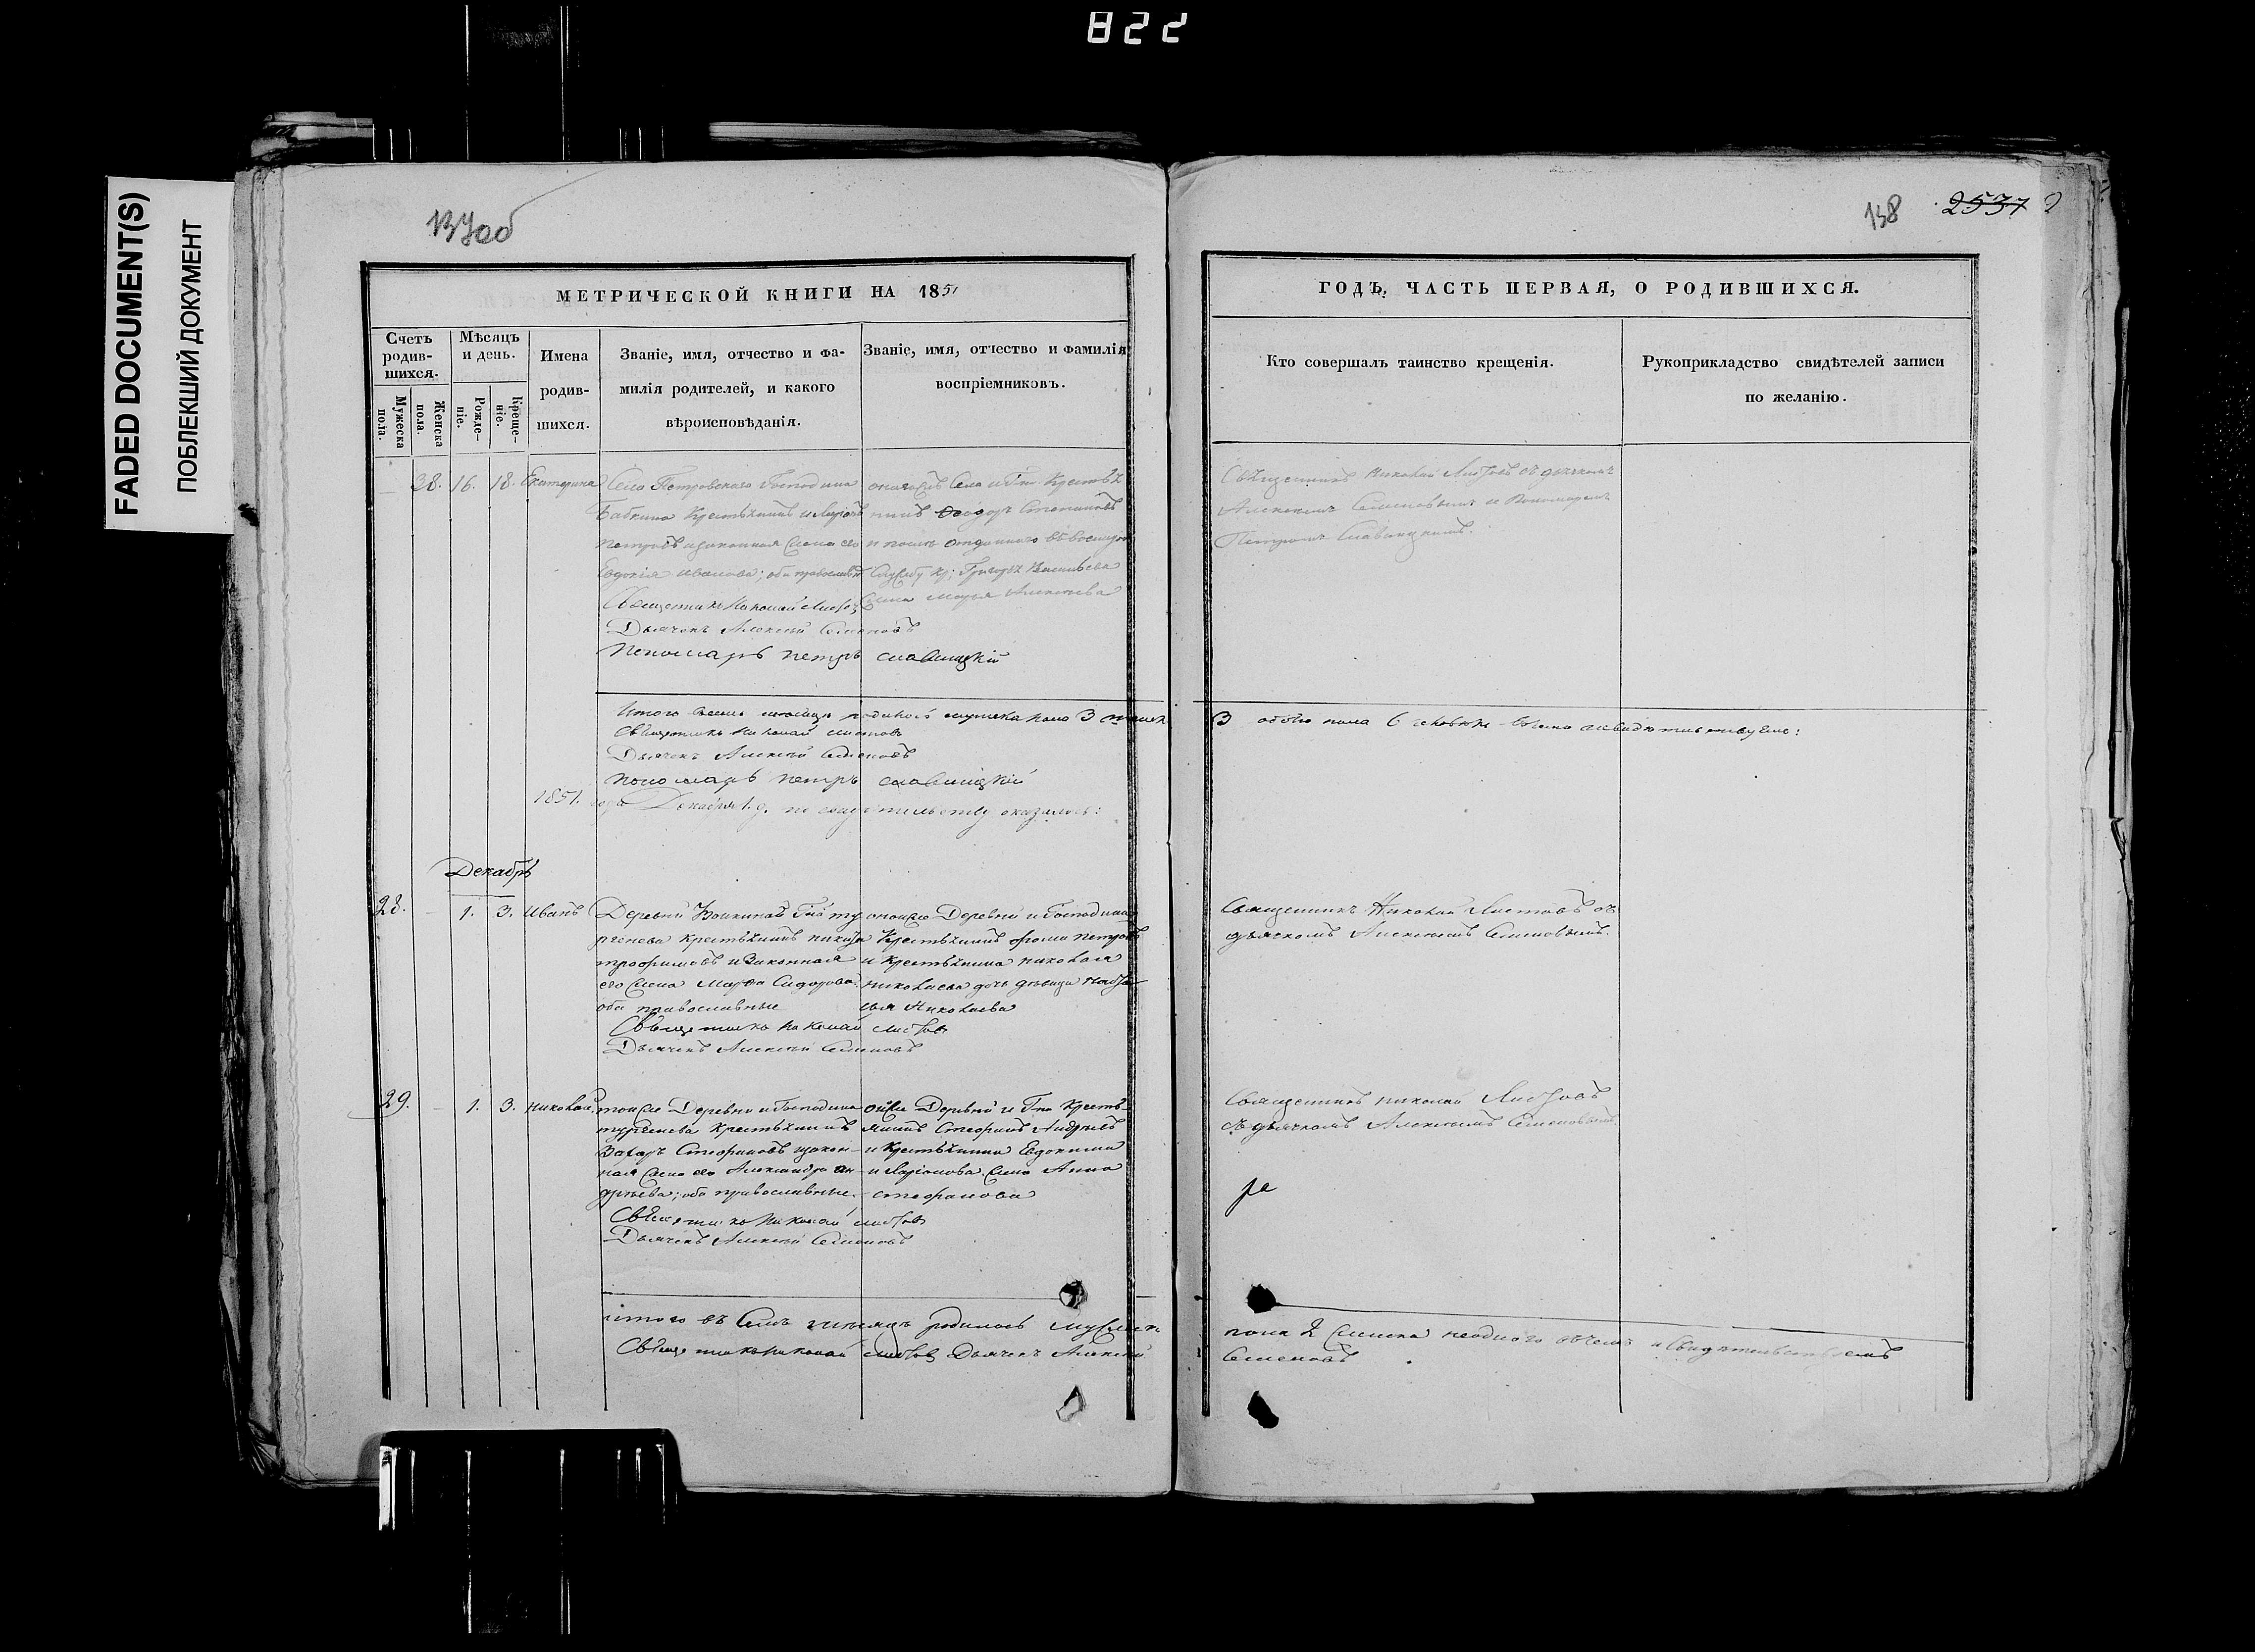 822
FADED DOCUMENT(S)
ПОБЛЕКШИЙ ДОКУМЕНТ
137об
138 2537 2
МЕТРИЧЕСКОЙ КНИГИ НА 1851
ГОДЪ, ЧАСТЬ ПЕРВАЯ, О РОДИВШИХСЯ.
Счетъ родив-шихся.
Мужеска пола.
Женска пола.
Мѣсяцъ и день.
Рожде-ніе.
Креще-ніе.
Имена
родив-
шихся.
Званіе, имя, отчество и фа-
милія родителей, и какого
вѣроисповѣданія.
Званіе, имя, отчество и фамилія
воспріемниковъ.
Кто совершалъ таинство крещенія.
Рукоприкладство свидѣтелей записи
по желанію.
38. 16. 18. Екатерина
Села Петровскаго Господина
Бабкина Крестьянинъ
Петровъ и законная жена его
Евдокія Иванова; оба православн
Священникъ Николай
Дьячекъ Алексѣй Семеновъ
Пономарь Петръ Славницкій
Села и Гна Крестья
нинъ Ѳеодоръ
Григорья Васильева
жена Марья Алексѣева
Священникъ Николай съ дьячкомъ
Алексѣемъ Семеновымъ и Пономаремъ
Петромъ Славницкимъ.
Итого мужеска пола 3 женск
3 обоего пола 6 человѣкъ
Священникъ Николай
Дьячекъ Алексѣй Семеновъ
Пономарь Петръ Славницкій
1851. года Декабря 1. д. по свидѣтельству оказалось:
Декабрь
28. 1. 3. Иванъ
Деревни Гна Ту
ргенева Крестьянинъ Никита
Трофимовъ и Законная
его жена Марѳа Сидорова
оба православные
Священникъ Николай
Дьячекъ Алексѣй Семеновъ
оной же Деревни и Господина
Крестьянинъ Ѳома Петровъ
и Крестьянина Николая
Николаева дочь дѣвица
Николаева
Священникъ Николай съ
дьячкомъ Алексѣемъ Семеновымъ.
29. 1. 3. Николай
той же Деревни и Господина
Тургенева Крестьянинъ
Захаръ Стефановъ и закон-
ная жена его Александра Ан-
дреева; оба православные.
Священникъ Николай
Дьячекъ Алексѣй Семеновъ
ой же Деревни и Гна Кресть-
янинъ Стефанъ Андреевъ
и Крестьянина Евдокима
Иларіонова жена Анна
Стефанова
Священникъ Николай
съ дьячкомъ Алексѣемъ Семеновымъ.
ра
итого въ семъ мѣсяцѣ родилось мужеск
пола 2 женска ни одного въ чемъ и свидѣтельствуемъ
Священникъ Николай Дьячекъ Алексѣй
Семеновъ